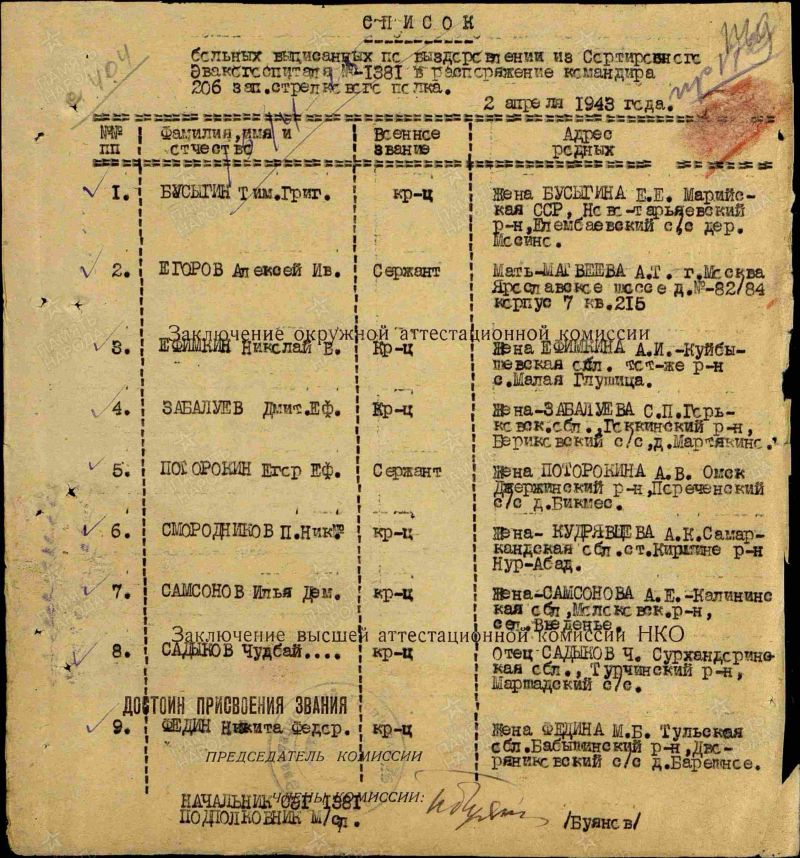 СПИСОК
больных выписанных по выздоровлении из Сортировочного
Эвакогоспиталя №-1381 в распоряжение командира
206 зап.стрелкового полка.
2 апреля 1943 года.
с 404
№№ Фамилия,имя и Военное Адрес
пп отчество звание родных
1. БУСЫГИН Тим.Григ. кр-ц Жена БУСЫГИНА Е.Е. Марийс-
кая ССР, Ново-тарьяевский
р-н,Елембаевский с/с дер.
Мосино.
2. ЕГОРОВ Алексей Ив. Сержант Мать-МАТВЕЕВА А.Г. г.Москва
Ярославское шоссе д.№-82/84
корпус 7 кв.215
Заключение окружной аттестационной комиссии
3. ЕФИМКИН Николай В. Кр-ц Жена ЕФИМКИНА А.И.-Куйбы-
шевская обл. тот-же р-н
с.Малая Глушица.
4. ЗАБАЛУЕВ Дмит.Еф. Кр-ц Жена-ЗАБАЛУЕВА С.П.Горь-
ковск.обл.,Гоккинский р-н,
Бериковский с/с,д.Мартякино.
5. ПОТОРОКИН Егор Еф. Сержант Жена ПОТОРОКИНА А.В. Омск
Джержинский р-н,Пореченский
с/с д.Бикмес.
6. СМОРОДНИКОВ П.Ник. кр-ц Жена- КУДРЯВЦЕВА А.К.Самар-
кандская обл.ст.Киршине р-н
Нур-Абад.
7. САМСОНОВ Илья Дем. кр-ц Жена-САМСОНОВА А.Е.-Калининс
кая обл,Молоковск.р-н,
сел.Введенье.
Заключение высшей аттестационной комиссии НКО
8. САДЫКОВ Чудбай.... кр-ц Отец САДЫКОВ Ч. Сурхандоринс
кая обл., Турчинский р-н,
Маршадский с/с.
ДОСТОИН ПРИСВОЕНИЯ ЗВАНИЯ
9. ФЕДИН Никита Федор. кр-ц Жена ФЕДИНА М.Б. Тульская
обл.Бабышинский р-н,Дво-
ряниковский с/с д.Барешное.
ПРЕДСЕДАТЕЛЬ КОМИССИИ
ЧЛЕНЫ КОМИССИИ:
НАЧАЛЬНИК СЭГ 1381
ПОДПОЛКОВНИК М/сл. /Буянов/